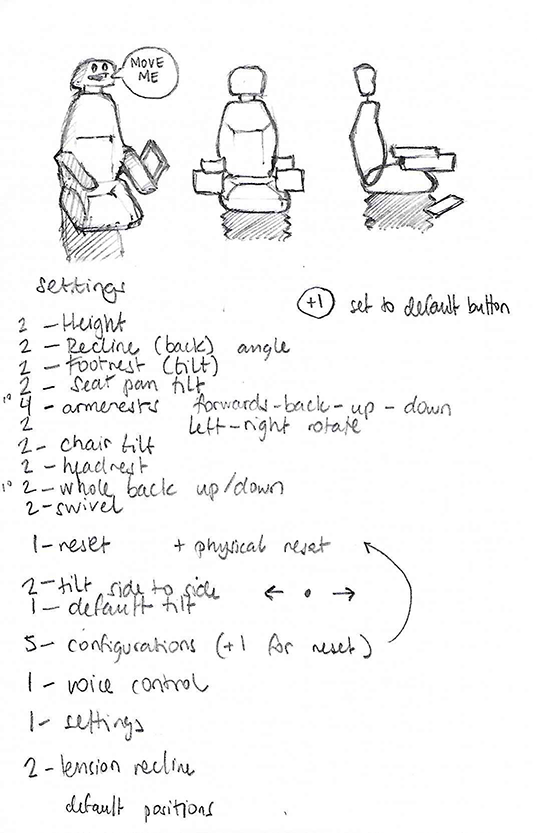 MOVE
ME
settings
+1 set to default button
2 - Height
2 - Recline (back) angle
2 - Footrest (tilt)
2 - Seat pan tilt
10 4 - armerests forwards-back-up-down
2 left-right rotate
2 - chair tilt
2 - headrest
10 2 - whole back up/down
2 - swivel
1 - reset + physical reset
2 - tilt side to side ← • →
1 - default tilt
5 - configurations (+1 for reset)
1 - voice control
1 - settings
2 - tension recline
default positions